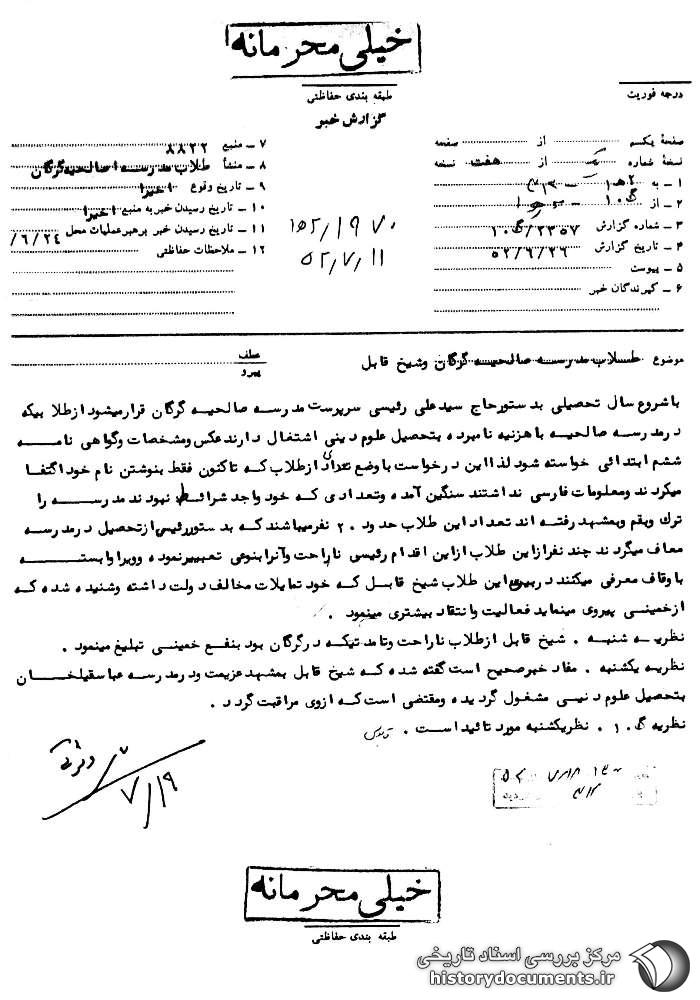 خیلی محرمانه
طبقه بندی حفاظتی
گزارش خبر
درجه فوریت
صفحه یکم از صفحه
نسخه شماره یک از هفت نسخه
۱ ـ به
۲ ـ از
۳ ـ شماره گزارش ۲۳۵۷/ ۱۰گ
۴ ـ تاریخ گزارش ۵۲/۶/۲۶
۵ ـ پیوست
۶ ـ گیرندگان خبر
۷ ـ منبع ۸۸۲۲
۸ ـ منشأ طلاب مدرسه صالحیه گرگان
۹ ـ تاریخ وقوع اخیرا
۱۰ ـ تاریخ رسیدن خبر به منبع اخیرا
۱۱ ـ تاریخ رسیدن خبر برهبر عملیات محل /۶/۲۴
۱۲ ـ ملاحظات حفاظتی
۵۲/۷/۱۱
موضوع طلاب مدرسه صالحیه گرگان وشیخ قابل
عطف
پیرو
باشروع سال تحصیلی بدستورحاج سیدعلی رئیسی سرپرست مدرسه صالحیه گرگان قرارمیشود ازطلابیکه
درمدرسه صالحیه باهزنیه نامبرده بتحصیل علوم دینی اشتغال دارندعکس ومشخصات وگواهی نامه
ششم ابتدائی خواسته شود لذااین درخواست باوضع تعدادی ازطلاب که تاکنون فقط بنوشتن نام خوداکتفا
میکردند ومعلومات فارسی نداشتند سنگین آمده وتعدادی که خود واجد شرائط نبودند مدرسه را
ترك وبقم وبمشهد رفته اند تعداد این طلاب حدود ۲۰ نفرمیباشند که بدستوررئیسی ازتحصیل درمدرسه
معاف میگردند چند نفرازاین طلاب ازاین اقدام رئیسی ناراحت وآنرابنوعی تعبیرنموده وویراوابسته
باوقاف معرفی میکنند دربین این طلاب شیخ قابل که خود تمایلات مخالف دولت داشته وشنیده شده که
ازخمینی پیروی مینماید فعالیت وانتقاد بیشتری مینمود .
نظریه شنبه . شیخ قابل ازطلاب ناراحت وتامدتیکه درگرگان بود بنفع خمینی تبلیغ مینمود .
نظریه یکشنبه . مفاد خبرصحیح است گفته شده که شیخ قابل بمشهد عزیمت ودرمدرسه عباسقلیخان
بتحصیل علوم دنیی مشغول گردیده ومقتضی است که ازوی مراقبت گردد .
نظریه ۱۰ گ . نظریکشنبه مورد تائیداست .
۷/۱۹
خیلی محرمانه
طبقه بندی حفاظتی
مرکز بررسی اسناد تاریخی
historydocuments.ir